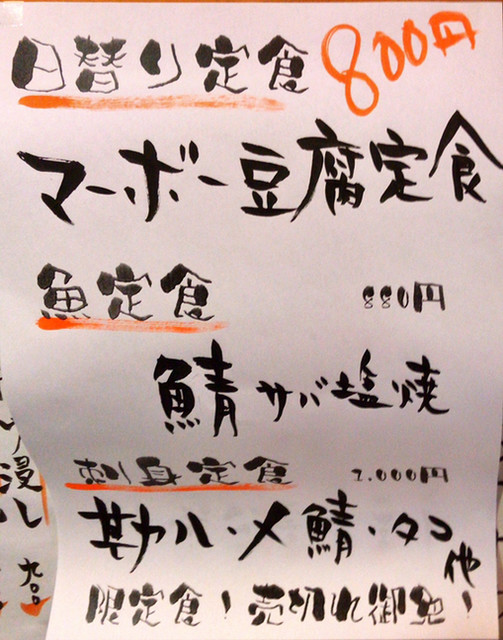 日替り定食 800円
マーボー豆腐定食
魚定食 880円
鯖サバ塩焼
刺身定食 1,000円
勘八・〆鯖・タコ他!
限定食!売切れ御免!
浸し
九〇〇